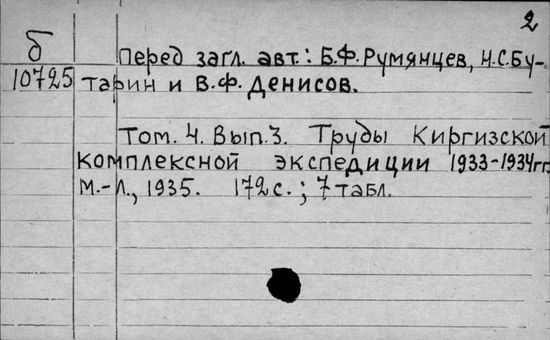 2
б
10725
Перед загл. авт.: Б.Ф. Румянцев, Н.С. Бу-
тарин и В.Ф. Денисов.
Том. 4. Вып. 3. Труды Киргизской
комплексной экспедиции 1933-1934гг.
М.-Л., 1935. 172 с.; 7 табл.